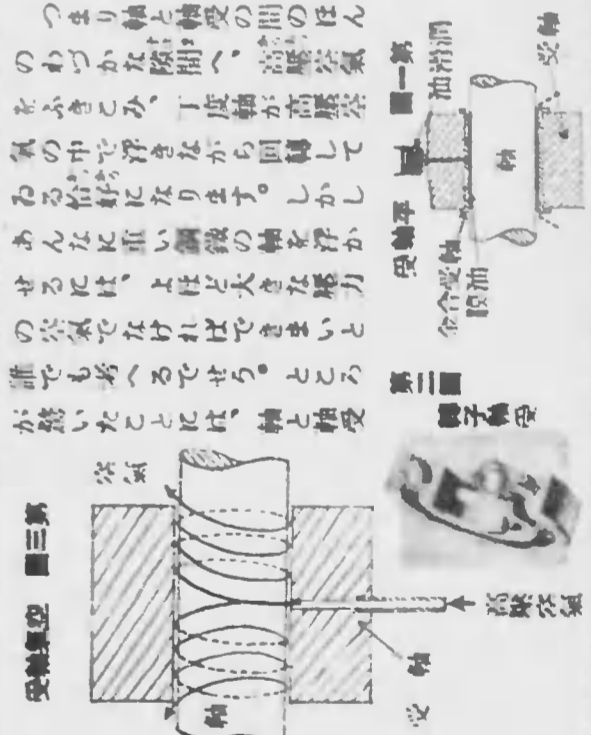 つまり軸と軸受の間のほん
のわづかな隙間へ、高壓空氣
をふきこみ、丁度軸が高壓空
氣の中で浮きながら回轉して
ゐる恰好になります。しかし
あんなに重い鋼鐵の軸を浮か
せるには、よほど大きな壓力
の空氣でなければできまいと
誰でも考へるでせう。ところ
が驚いたことには、軸と軸受
受軸平 圖一第
油滑潤
受軸
軸
金合受軸
膜油
第二圖
子軸受
受軸氣空 圖三第
空氣
軸
高壓空氣
軸受